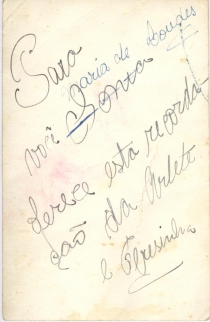 Para
Maria de Lourdes
você
oferece esta recorda
ção da Arlete
e Teresinha